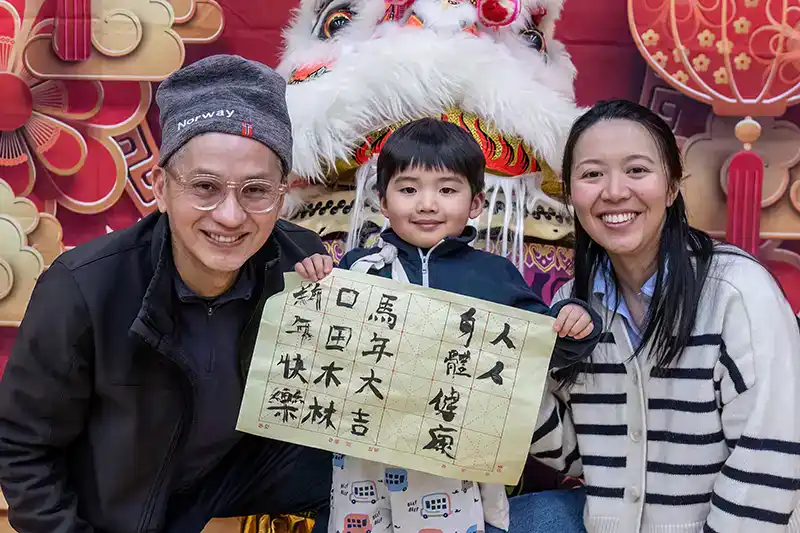 Norway
人人
身體健康
馬年大吉
口田木林
新年快樂